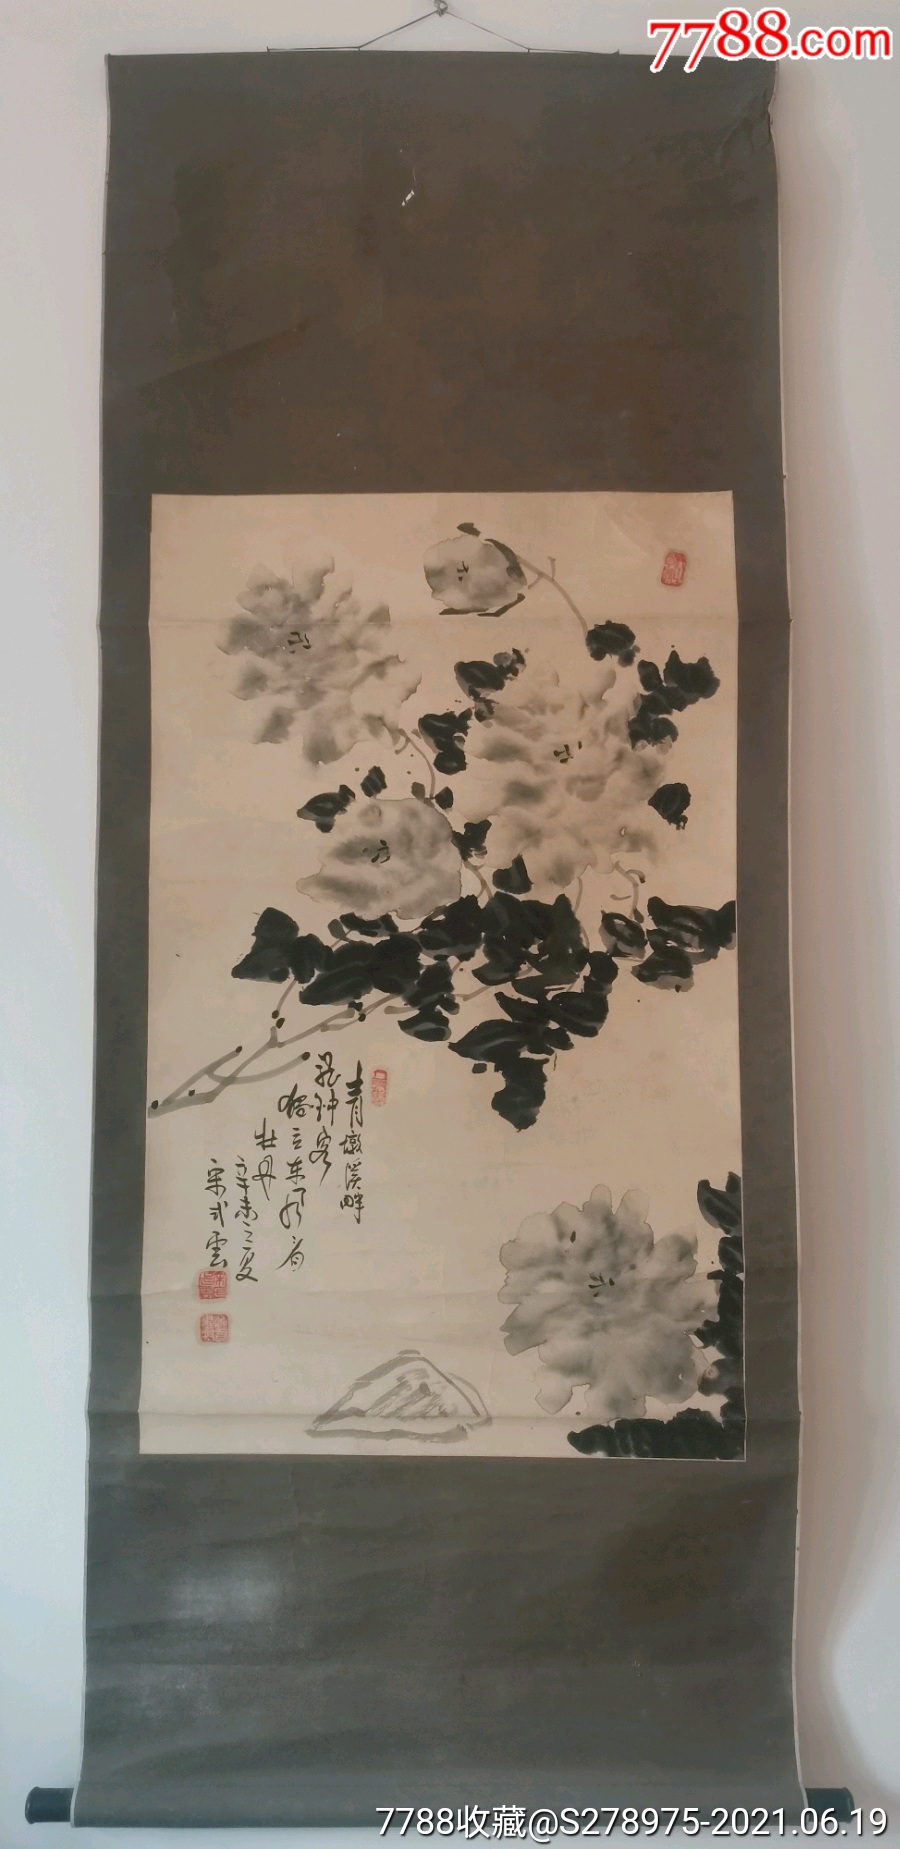 7788.com
青墩溪畔
龍钟客
独立东风看
牡丹
辛未之夏
宋武雲
7788收藏@S278975-2021.06.19